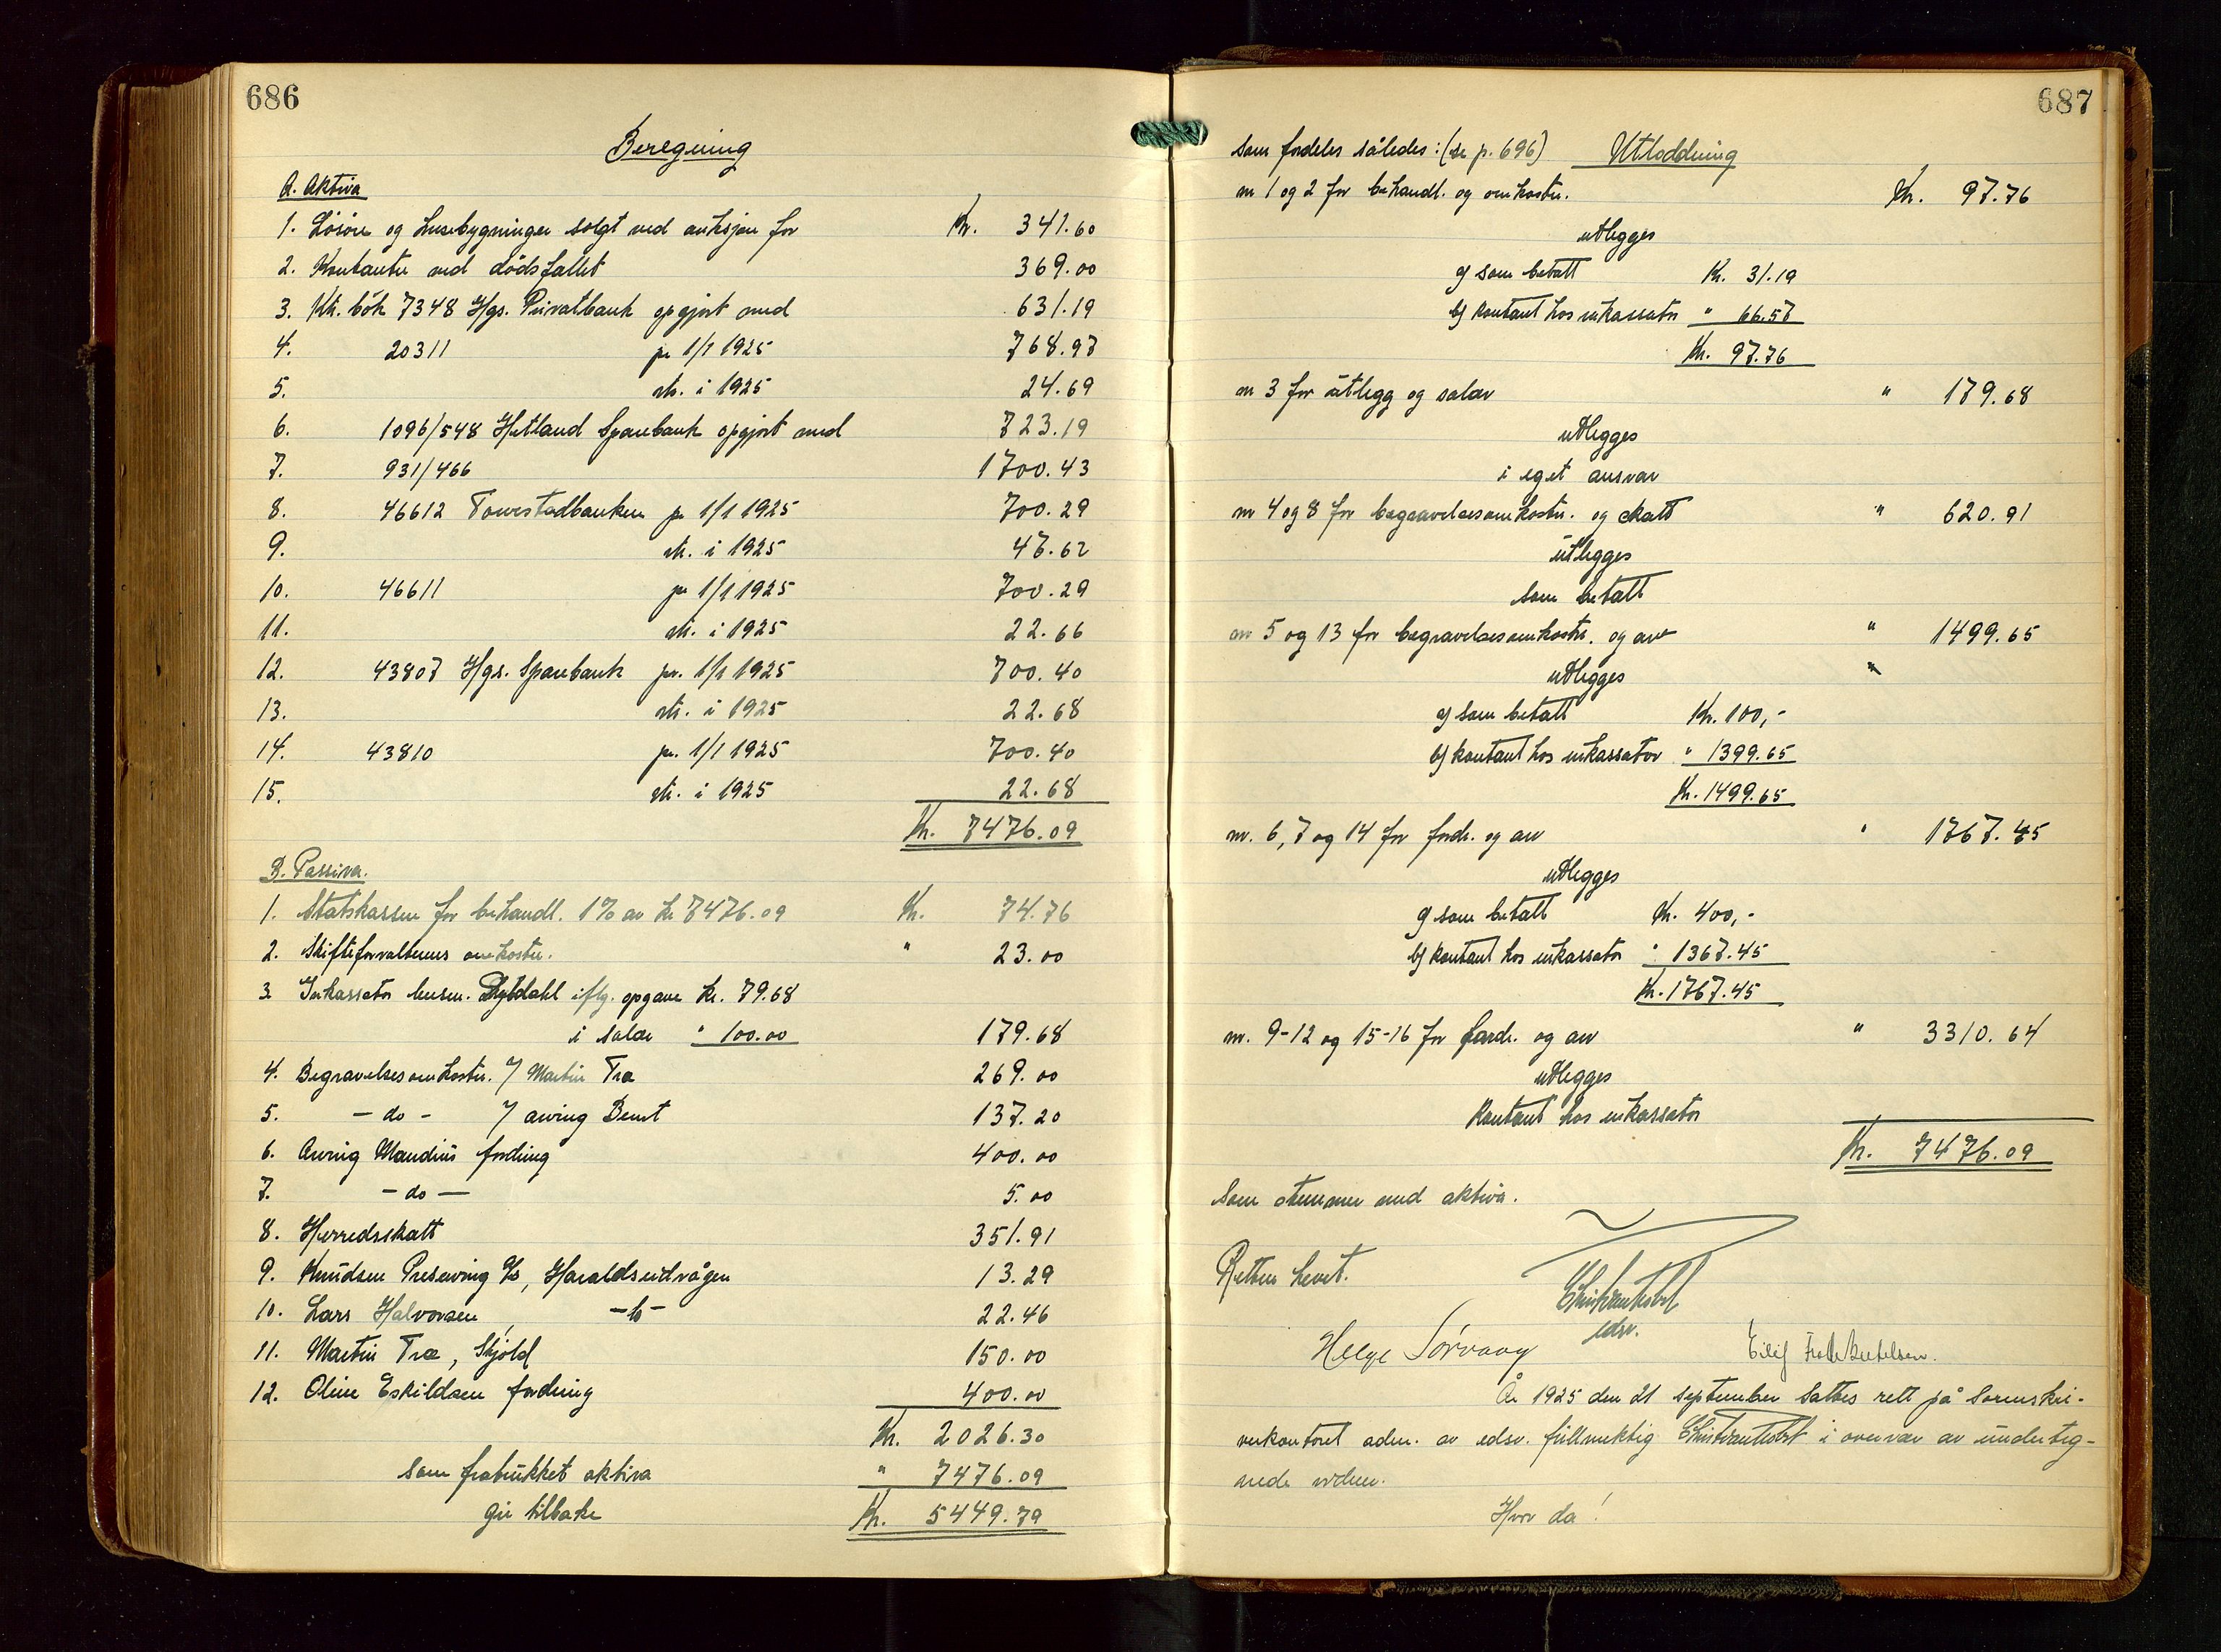 686
Beregning
A. Aktiva
1. Lösöre og husebygninger solgt ved auksjon for Kr. 341.60
2. Kontanter ved dödsfallet 369.00
3. Ktr. bök 7348 Hgs. Privatbank opgjort med 631.19
4. 20311 pr 1/1 1925 768.97
5. rtr. i 1925 24.69
6. 1096/548 Hetland Sparebank opgjort med 723.19
7. 931/466 1700.43
8. 46612 Torvestadbanken pr 1/1 1925 700.29
9. rtr. i 1925 47.62
10. 46611 pr 1/1 1925 700.29
11. rtr. i 1925 22.66
12. 43807 Hgs. Sparebank pr. 1/1 1925 700.40
13. rtr. i 1925 22.68
14. 43810 pr. 1/1 1925 700.40
15. rtr. i 1925 22.68
Kr. 7476.09
B. Passiva.
1. Statskassen for behandl. 1% av kr 7476.09 Kr. 74.76
2. Skifteforvalterens omkostn. " 23.00
3. Inkassator lensm. Dybdahl iflg. opgave kr. 79.68
i salær " 100.00 179.68
4. Begravelsesomkostn. v/ Martin Træ 269.00
5. - do - v/ arving Bernt 137.20
6. Arving Maudius fordring 400.00
7. - do - 5.00
8. Herredsskatt 351.91
9. Knudsen Preserving A/S, Haraldseidvågen 13.29
10. Lars Halvorsen, - do - 22.46
11. Martin Træ, Skjold 150.00
12. Oline Eskildsen fordring 400.00
Kr. 2026.30
som fratrukket aktiva " 7476.09
gir tilbake Kr. 5449.79
687
som fordeles således: (se p. 696) Utloddning
nr 1 og 2 for behandl. og omkostn. Kr. 97.76
utlegges
a) som betalt Kr. 31.19
b) kontant hos inkassator " 66.57
Kr. 97.76
nr 3 for utlegg og salær " 179.68
utlegges
i eget ansvar
nr 4 og 8 for begravelsesomkostn. og skatt " 620.91
utlegges
som betalt
nr 5 og 13 for begravelsesomkostn. og arv " 1499.65
utlegges "
a) som betalt Kr. 100,-
b) kontant hos inkassator " 1399.65
Kr. 1499.65
nr. 6, 7 og 14 for fordr. og arv " 1767.45
utlegges
a) som betalt Kr. 400,-
b) kontant hos inkassator " 1367.45
Kr. 1767.45
nr. 9-12 og 15-16 for fordr. og arv " 3310.64
utlegges
kontant hos inkassator
Kr. 7476.09
som stemmer med aktiva.
Retten hevet.
edsv.
Helge Sørvaag Eilif
År 1925 den 21 september sattes rett på sorenskri-
verkontoret adm. av edsv. fullmektig i overvær av underteg-
nede vidner.
Hvor da!